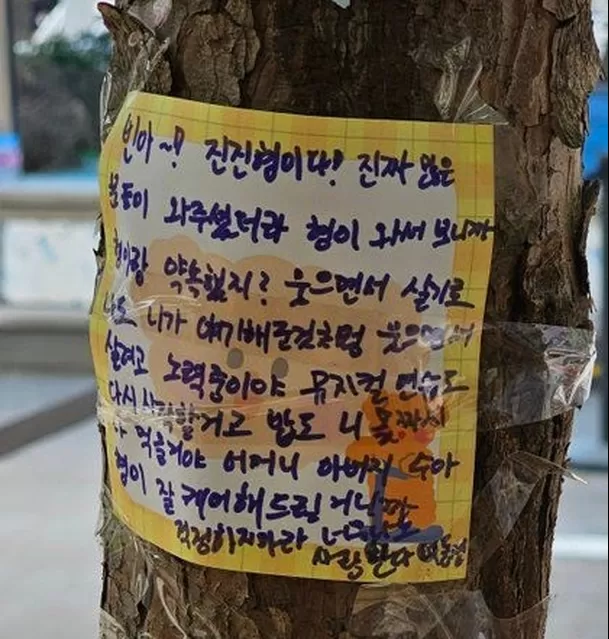 빈아~! 진진형이다! 진짜 많은
분들이 와주셨더라 형이 와서 보니까
형이랑 약속했지? 웃으면서 살기로
나도 니가 얘기해준것처럼 웃으면서
살려고 노력중이야 뮤지컬 연습도
다시 시작할거고 밥도 니 몫까지
다 먹을거야 어머니 아버지 수아
형이 잘 케어해드릴거니까
걱정하지마라
사랑한다